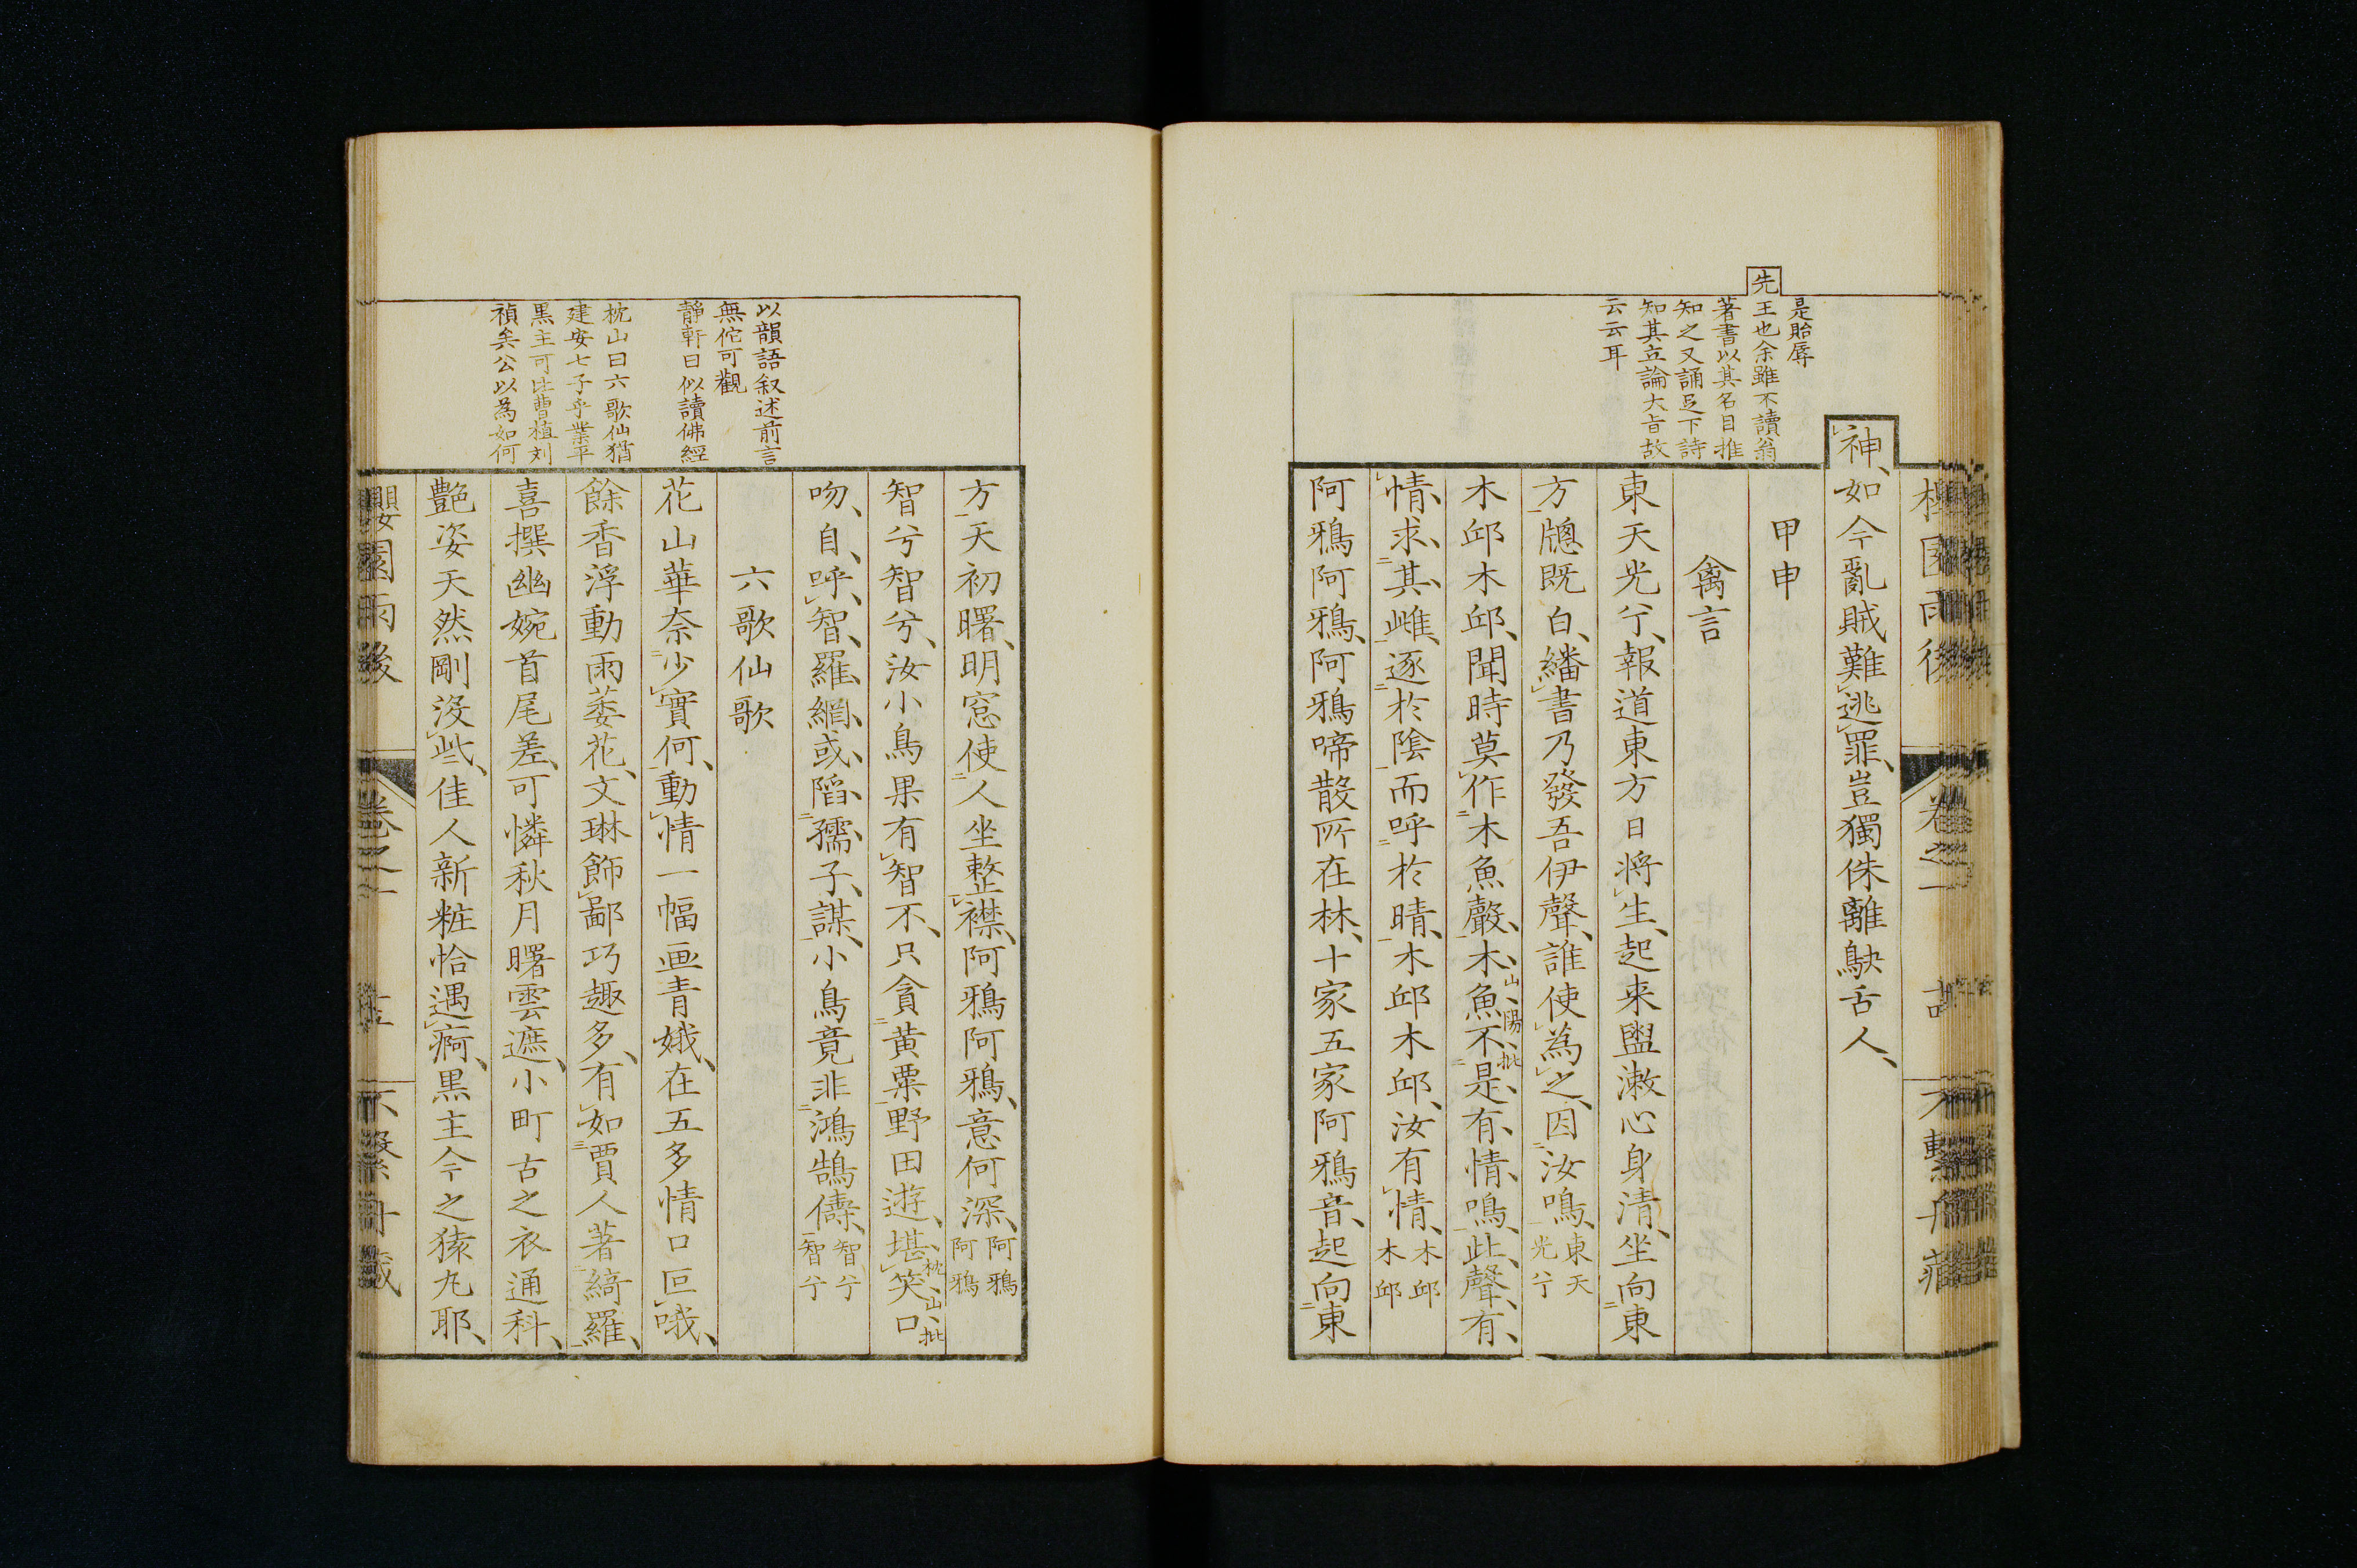 是貽辱
先王也余雖不讀翁
著書以其名目推
知之又誦是下詩
知其立論大旨故
云云耳
神、如今亂賊難逃罪、豈獨侏離鴃舌人、
甲申
禽言
東天光兮、報道東方日将生、起来盥漱心身清、坐向東
方牕既白、繙書乃發吾伊聲、誰使為之、因汝鳴、東天光兮
木邱木邱、聞時莫作木魚聲、木魚不是有情鳴、此聲有
山陽批
情、求其雌、逐於陰而呼於晴、木邱木邱、汝有情、木邱木邱
阿鴉阿鴉、阿鴉阿鴉啼散所在林、十家五家阿鴉音、起向東
以韻語叙述前言
無佗可觀
靜軒曰似讀佛經
枕山曰六歌仙猶
建安七子乎業平
黒主可比曹植刘
禎矣公以為如何
方天初曙、明窓使人坐整襟、阿鴉阿鴉、意何深、阿鴉阿鴉
智兮智兮、汝小鳥果有智不、只貪黄粟野田遊、堪笑口
枕山批
吻、自呼智、羅網或陷孺子謀、小鳥竟非鴻鵠儔、智兮智兮
六歌仙歌
花山華奈少實何、動情一幅画青娥、在五多情口叵哦、
餘香浮動雨萎花、文琳飾鄙巧趣多、有如賈人著綺羅、
喜撰幽婉首尾差、可憐秋月曙雲遮、小町古之衣通科、
艶姿天然剛沒些、佳人新粧恰遇痾、黒主今之猿丸耶、